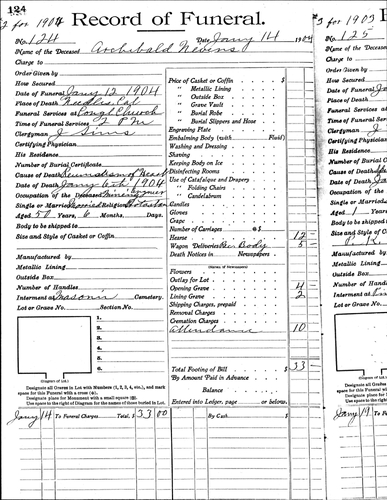 124
2 for 1904 Record of Funeral.
No. 124 Date, Jany 14 1904
Name of the Deceased Archibald Nevens
Charge to
Order Given by
How Secured
Date of Funeral Jany 12 1904
Place of Death Needles Cal
Funeral Services at Cong'l Church
Time of Funeral Service 2 P M
Clergyman J Sims
Certifying Physician
His Residence
Number of Burial Certificate
Cause of Death of Heart
Date of Death Jany 6th 1904
Occupation of the Deceased
Single or Married Married Religion Protestant
Aged 50 Years, 6 Months, Days
Body to be shipped to
Size and Style of Casket or Coffin
Manufactured by
Metallic Lining
Outside Box
Number of Handles
Interment at Masonic Cemetery.
Lot or Grave No. Section No.
1.
2.
3.
4.
5.
6.
(Diagram of Lot.)
Designate all Graves in Lot with Numbers (1, 2, 3, 4, etc.), and mark
space for this Funeral with a cross (x).
Designate place for Monument with a small square (□).
Use space to the right of Diagram for the names of those buried in Lot.
Price of Casket or Coffin $
" Metallic Lining
" Outside Box
" Grave Vault
" Burial Robe
" Burial Slippers and Hose
Engraving Plate
Embalming Body (with Fluid)
Washing and Dressing
Shaving
Keeping Body on Ice
Disinfecting Rooms
Use of Catafalque and Drapery
" Folding Chairs
" Candelabrum
Candles
Gloves
Crape
Number of Carriages @ $
Hearse 12
Wagon Deliveries Body 5
Death Notices in Newspapers
(Names of Newspapers)
Flowers
Outlay for Lot
Opening Grave 4
Lining Grave 2
Shipping Charges, prepaid
Removal Charges
Cremation Charges
Attendance 10
Total Footing of Bill $ 33
By Amount Paid in Advance
Balance
Entered into Ledger, page or below.
Jany 14 To Funeral Charges Total, $ 33 00 By Cash $
3 for 1903
No. 125
Name of the
Charge to
Order Given
How Secured
Date of Funeral
Place of Death
Funeral Services
Time of Funeral
Clergyman
Certifying Ph
His Residence
Number of Burial
Cause of Death
Date of Death
Occupation of
Single or Married
Aged 1 Years
Body to be shipped
Size and Style
Manufactured
Metallic Lining
Outside Box
Number of Han
Interment at
Lot or Grave
Designate all
space for this Fun
Designate plac
Use space to t
Jany 14